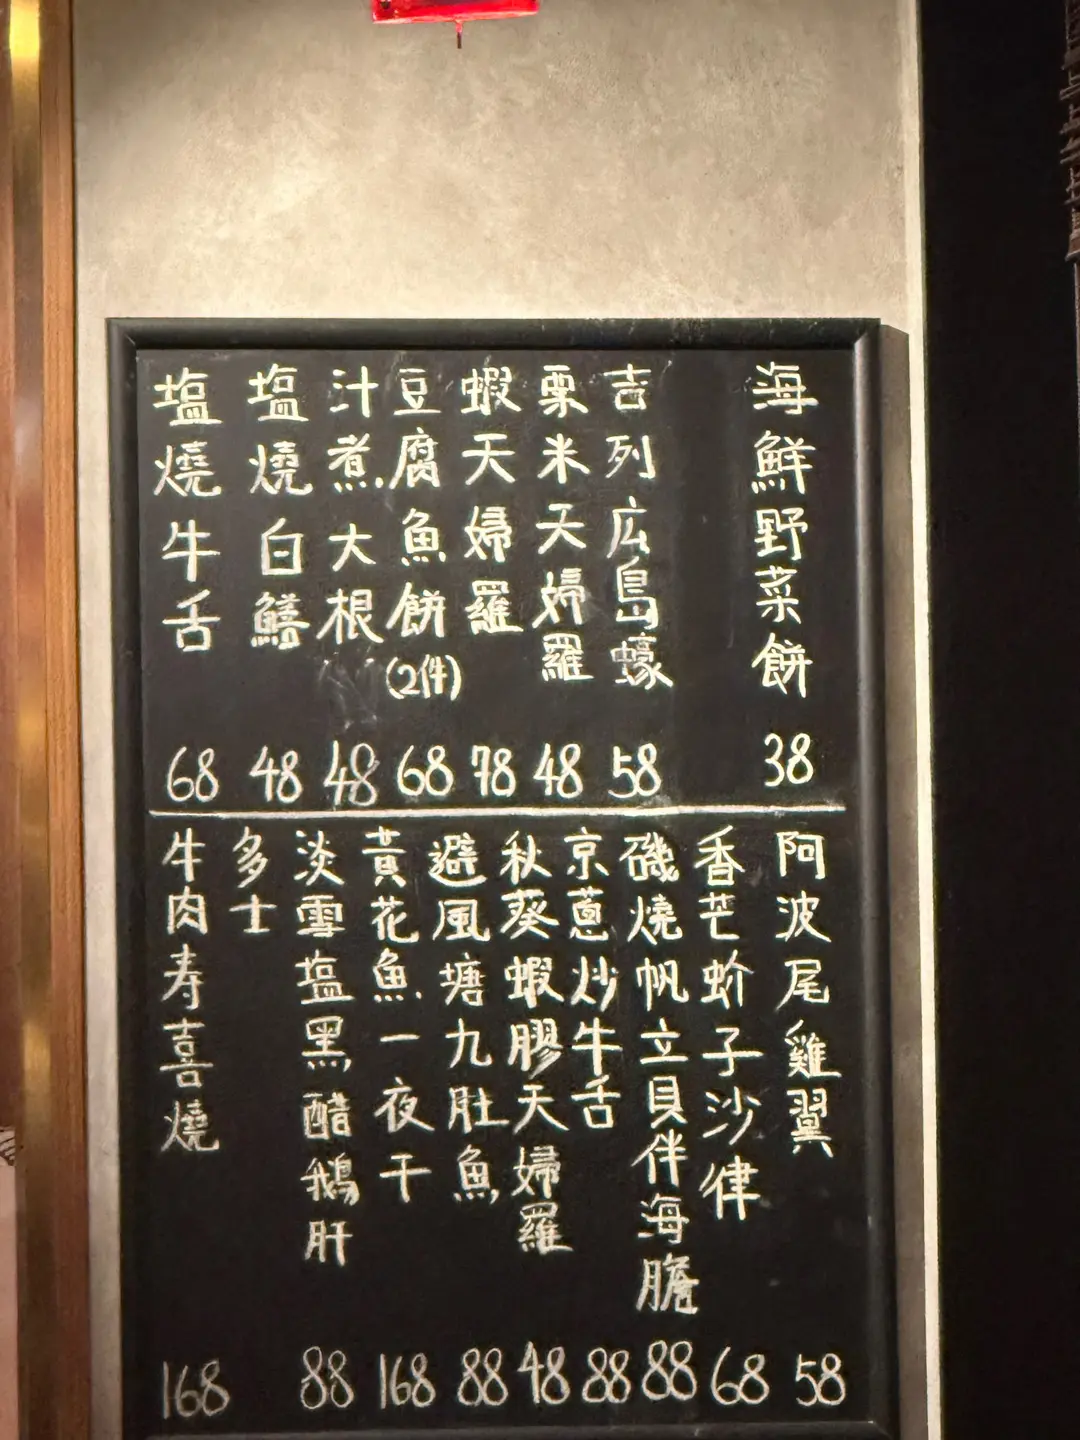 海鮮野菜餅 38
吉列広島蠔 58
粟米天婦羅 48
蝦天婦羅 78
豆腐魚餅(2件) 68
汁煮大根 48
塩燒白鱔 48
塩燒牛舌 68
阿波尾雞翼 58
香芒蚧子沙律 68
磯燒帆立貝伴海膽 88
京蔥炒牛舌 88
秋葵蝦膠天婦羅 48
避風塘九肚魚 88
黃花魚一夜干 168
淡雪塩黑醋鵝肝 88
多士
牛肉寿喜燒 168